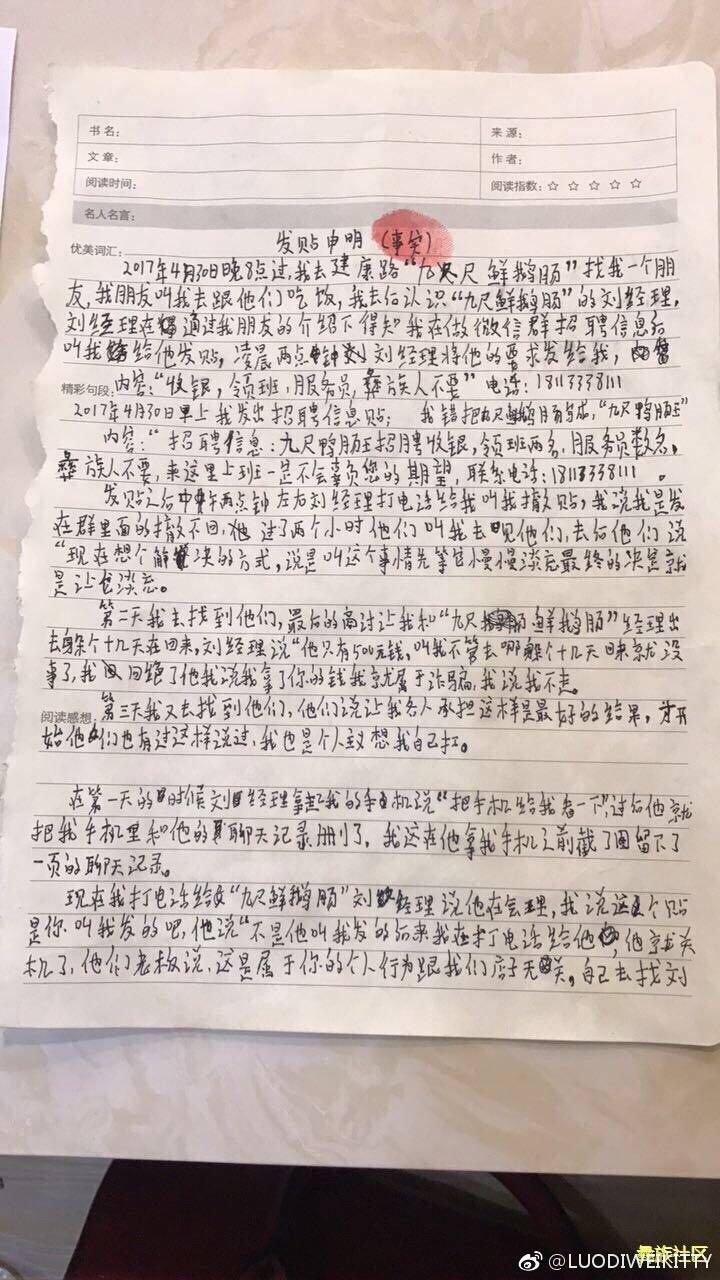 书名：
来源：
文章：
作者：
阅读时间：
阅读指数：☆ ☆ ☆ ☆ ☆
名人名言：
发贴申明（事实）
优美词汇：
2017年4月30日晚8点过，我去建康路“九尺鲜鹅肠”找我一个朋
友，我朋友叫我去跟他们吃饭，我去后认识“九尺鲜鹅肠”的刘经理，
刘经理在通过我朋友的介绍下得知我在做微信群招聘信息后
叫我给他发贴，凌晨两点钟刘经理将他的要求发给我，
精彩句段：
内容：“收银，领班，服务员，彝族人不要”电话：18113338111
2017年4月30日早上我发出招聘信息贴； 我错把九尺鲜鹅肠写成，“九尺鸭肠王”
内容：“招聘信息：九尺鸭肠王招聘收银，领班两名，服务员数名，
彝族人不要，来这里上班一是不会辜负您的期望，联系电话：18113338111。
发贴之后中午两点钟左右刘经理打电话给我叫我撤贴，我说我是发
在群里面的撤不回，他过了两个小时他们叫我去见他们，去后他们说
“现在想个解决的方式，说是叫这个事情先等它慢慢淡忘最终的决定就
是让它淡忘。
第二天我去找到他们，最后的商讨让我和“九尺鲜鹅肠”经理出
去躲个十几天在回来，刘经理说“他只有500元钱，叫我不管去哪躲个十几天回来就没
事了，我回绝了他我说我拿了你的钱我就属于诈骗，我说我不走。
阅读感想：
第三天我又去找到他们，他们说让我各人承担这样是最好的结果，才开
始他们也有过这样说过，我也是个人议想我自己扛。
在第一天的时候刘经理拿起我的手机说“把手机给我看一下”，过后他就
把我手机里和他的聊天记录删了，我还在他拿我手机之前截了图留下了
一页的聊天记录。
现在我打电话给“九尺鲜鹅肠”刘经理说他在会理，我说这个贴
是你叫我发的吧，他说“不是他叫我发的后来我在打电话给他，他就关
机了，他们老板说，这是属于你的个人行为跟我们店子无关，自己去找刘
彝族社区
@LUODIWEIKITTY